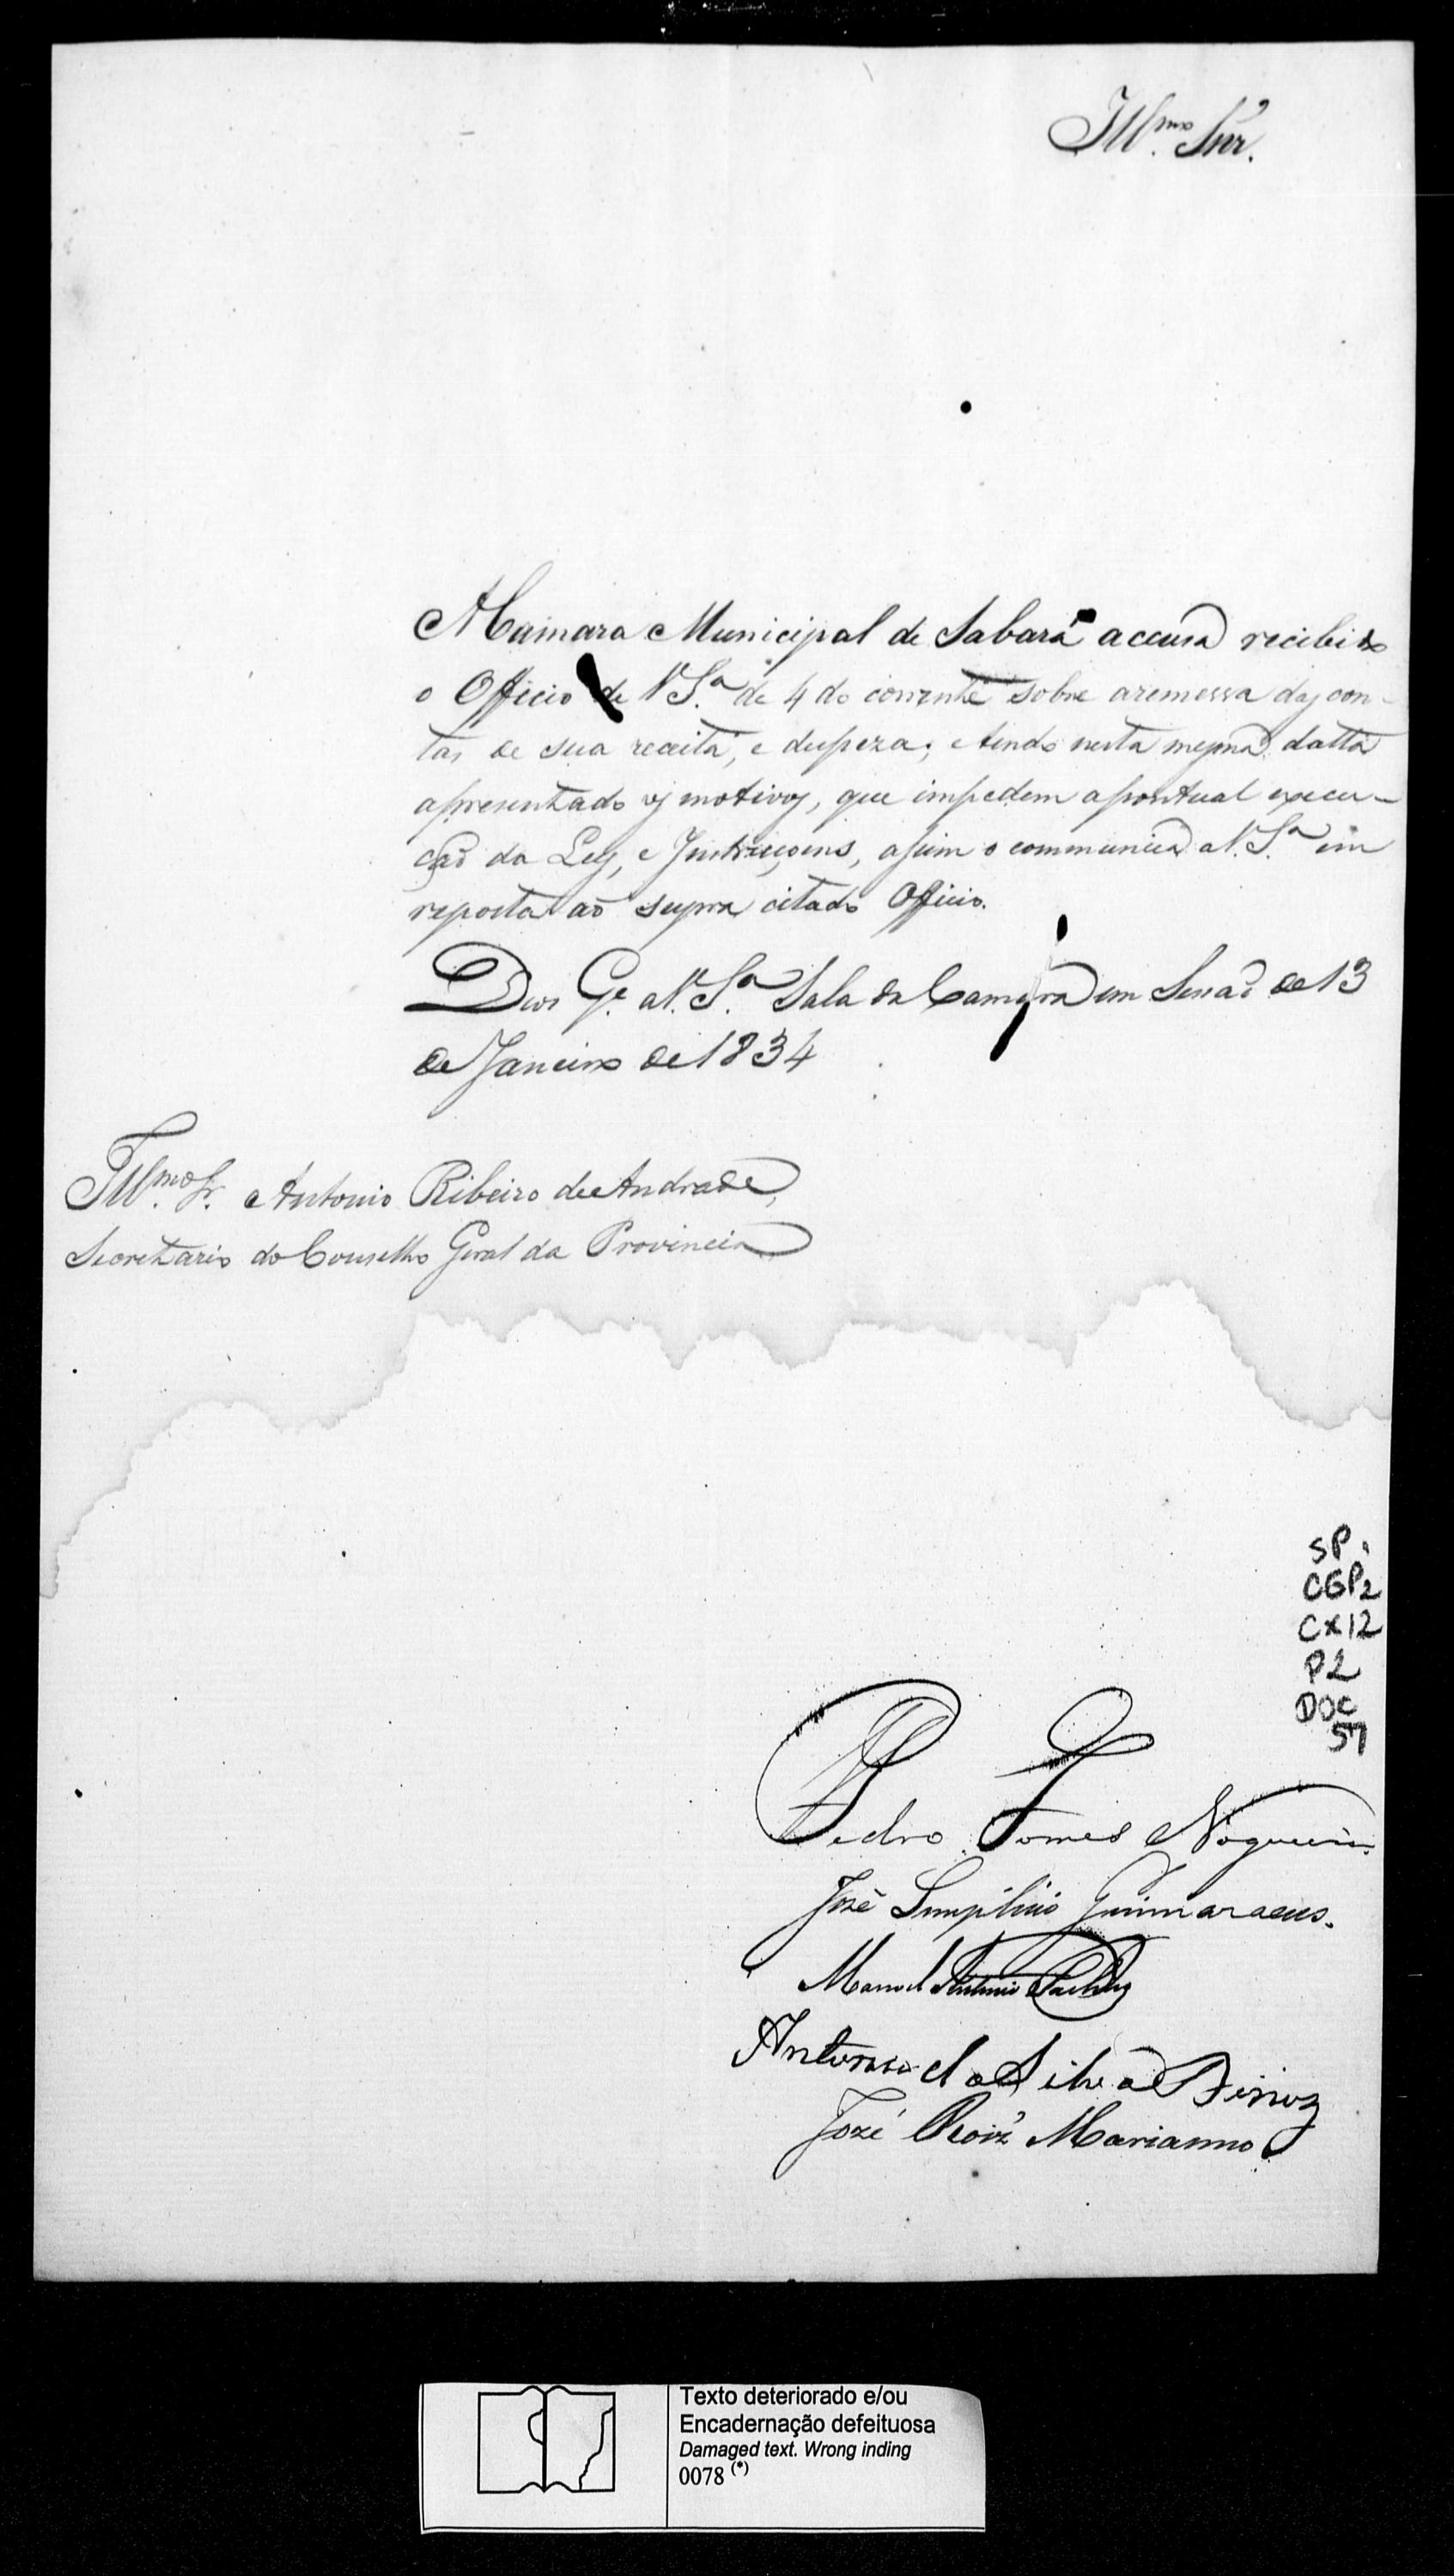 Illmo. Snr.
A Camara Municipal de Sabará accusa recibido
o Officio de V. S.a de 4 do corrente sobre aremessa das con-
tas de sua receita, e despeza; e tendo nesta mesma datta
apresentado os motivos, que impedem apontual execu-
ção da Ley, e Instrucçoens, assim o communica a V. S.a em
reposta ao supra citado Officio.
Deos G.e a V. S.a Sala da Camara em Sessaõ de 13
de Janeiro de 1834
Illmo. Sr. Antonio Ribeiro de Andrade,
Secretario do Conselho Geral da Provincia
SP.
CGP2
CX12
P2
DOC
57
Pedro Gomes Nogueira.
José Simplicio Guimaraens.
Manoel Antonio
Antonio da Silva
José Roiz' Marianno
Texto deteriorado e/ou
Encadernação defeituosa
Damaged text. Wrong inding
0078 (*)